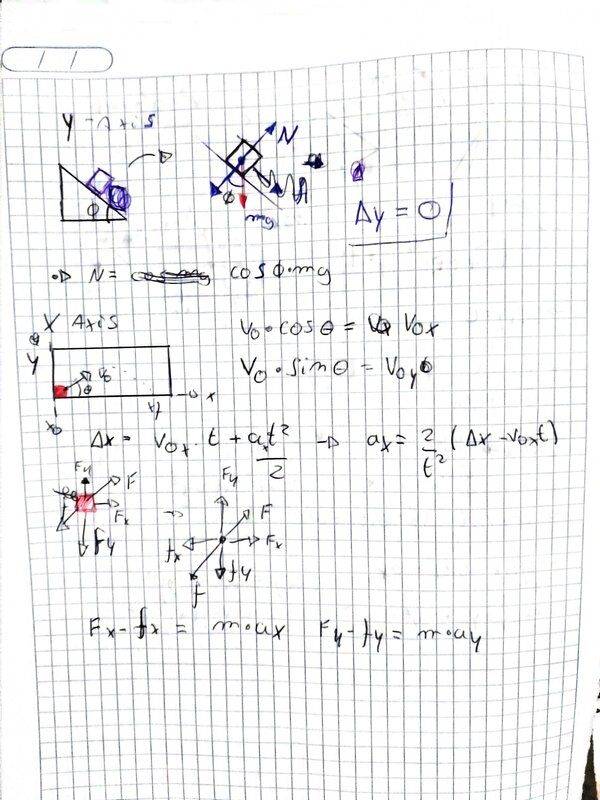 / /
Y-Axis
N
ϕ
ϕ
mg
Δy = 0
N = cosϕ·mg
X Axis
V₀·cosθ = V₀ₓ
y
V₀
θ
V₀·sinθ = V₀y
x₀
xf
x
Δx = V₀ₓ·t + aₓt²/2 → aₓ = 2/t² (Δx - V₀ₓt)
Fy
F
Fx
fy
Fy
F
fx
Fx
fy
f
Fx - fx = m·ax Fy - fy = m·ay